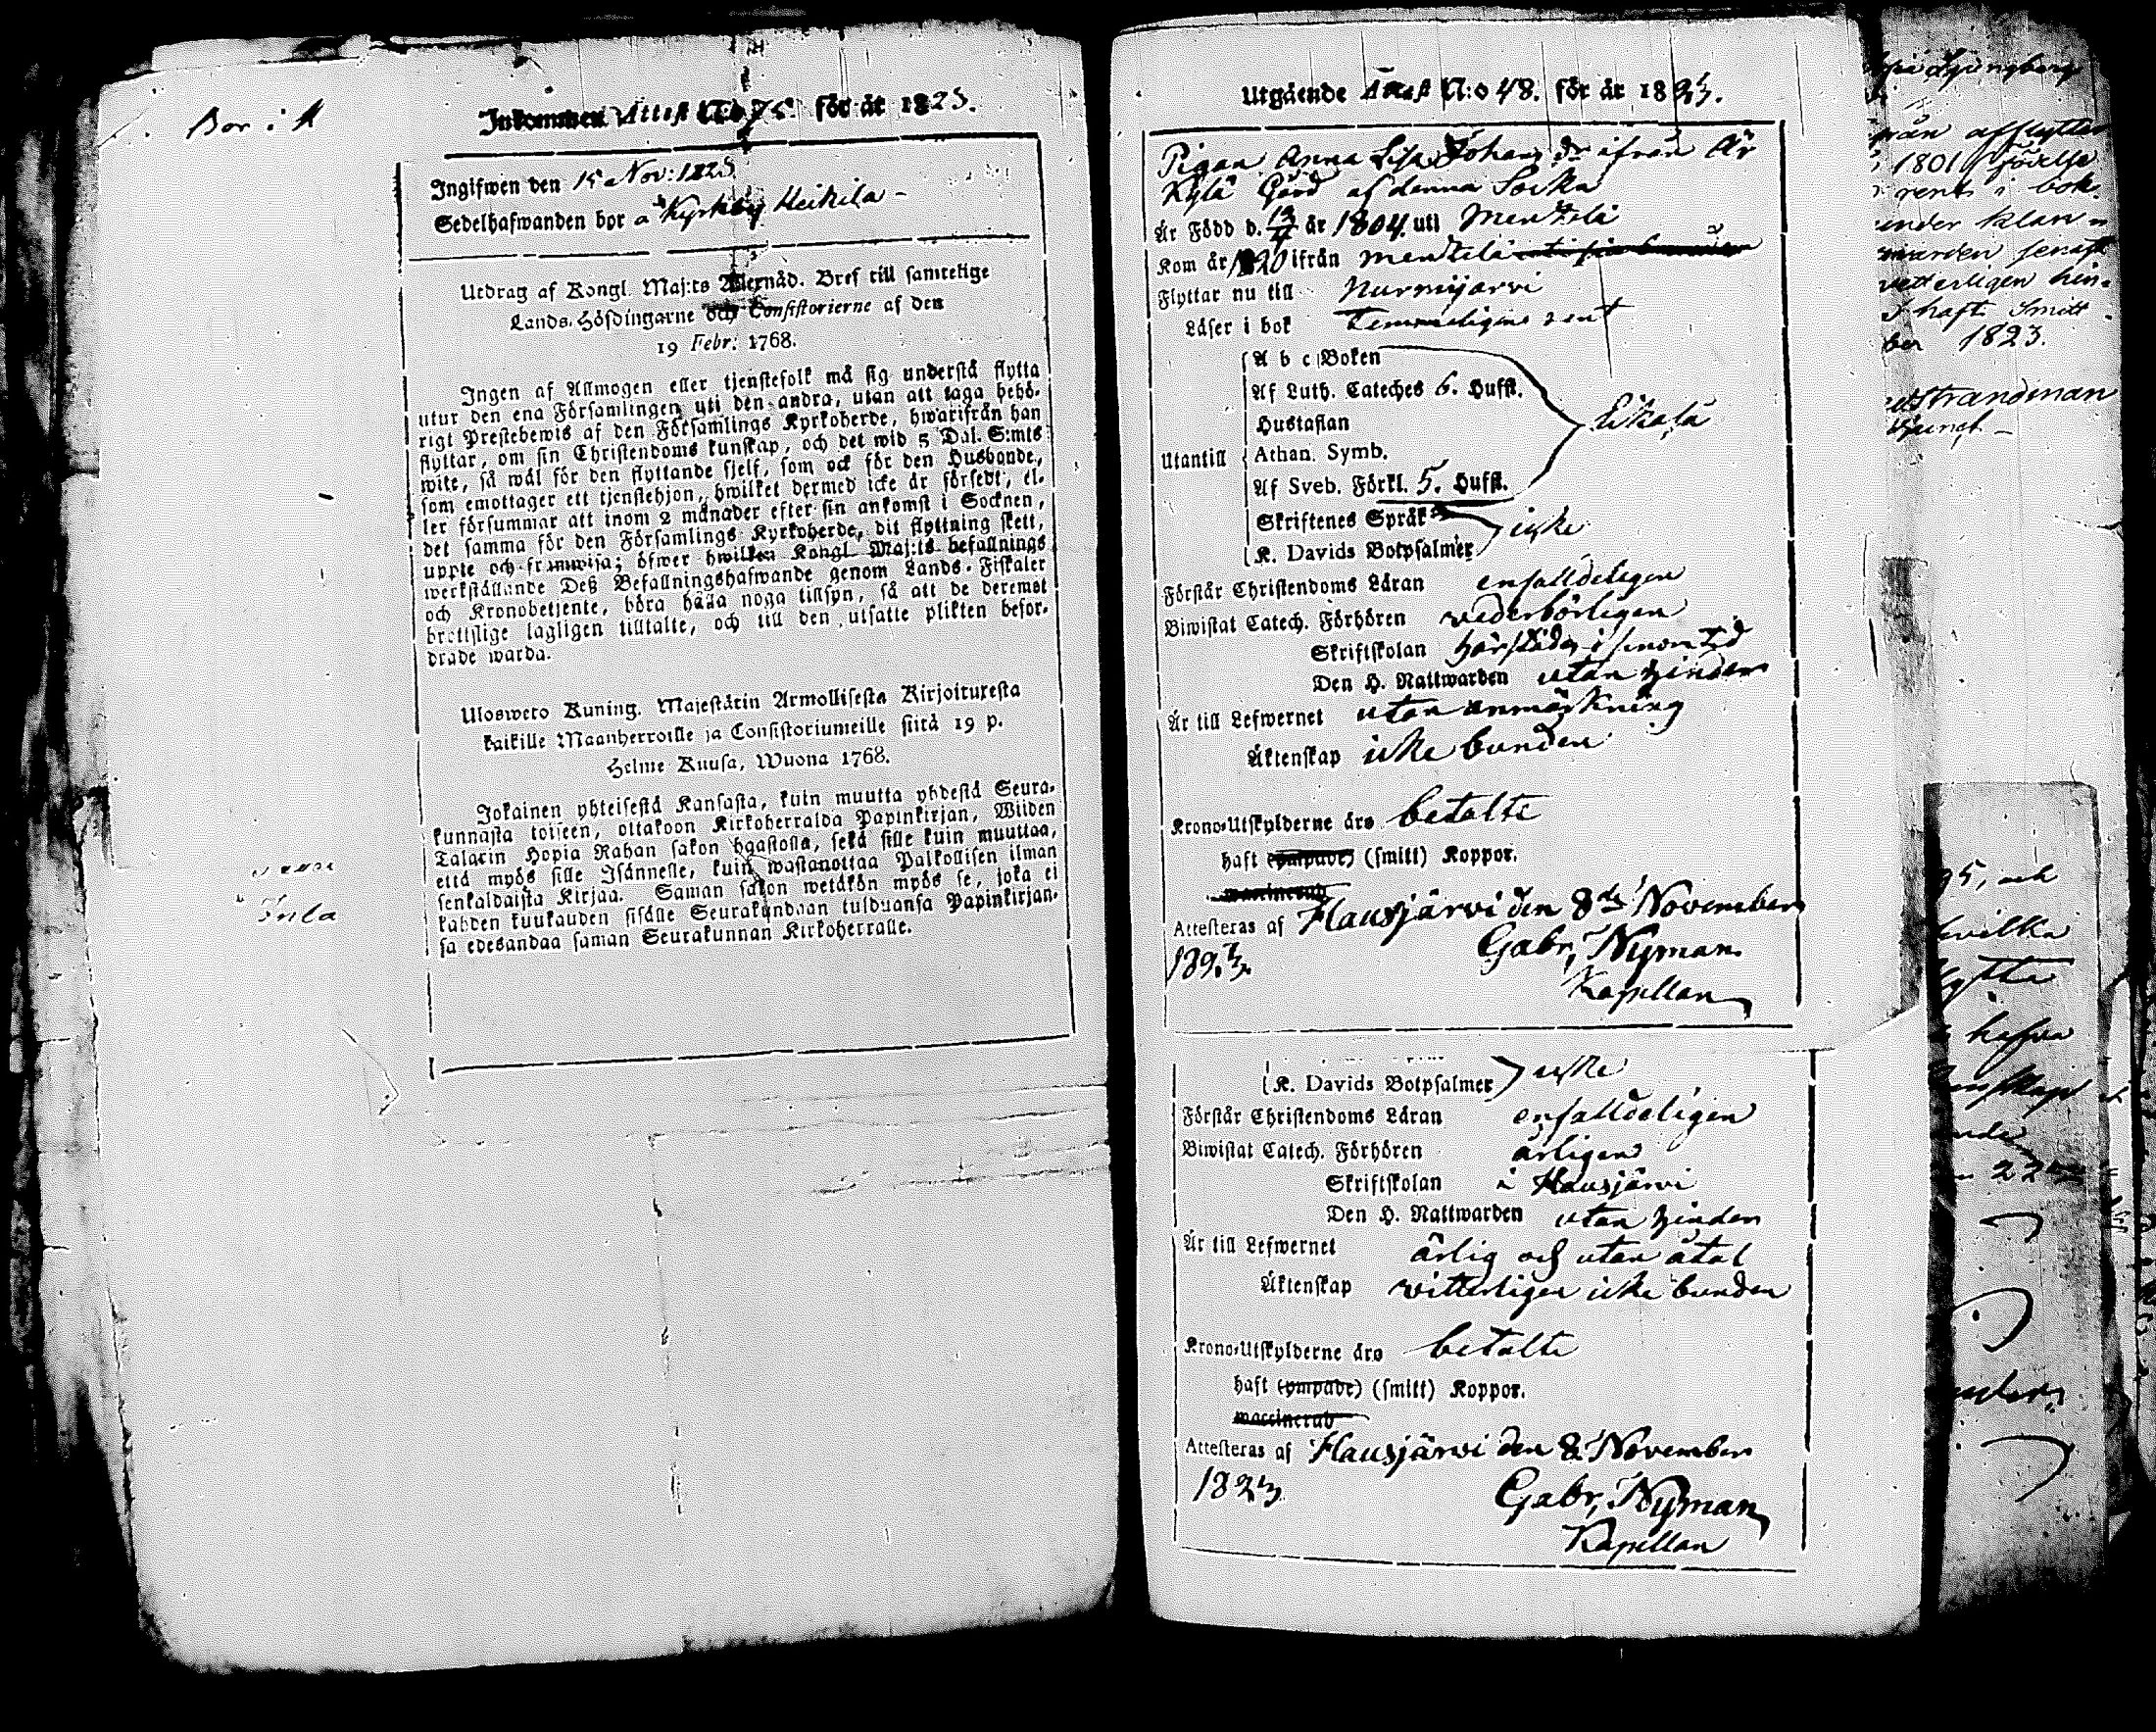 Bor i A
Inkommen Attest N:o 75. för år 1823.
Ingifwen den 15 Nov: 1823
Sedelhafwanden bor å Kyrkby Heikila -
Utdrag af Kongl. Maj:ts Allernåd. Bref till samtelige
Lands-Höfdingarne och Consistorierne af den
19 Febr: 1768.
Ingen af Allmogen eller tjenstefolk må sig understå flytta
utur den ena Församlingen uti den andra, utan att taga behö-
rigt Prestebewis af den Församlings Kyrkoherde, hwarifrån han
flyttar, om sin Christendoms kunskap, och det wid 5 Dal. S:mts
wite, så wäl för den flyttande sjelf, som ock för den Husbonde,
som emottager ett tjenstehjon, hwilket dermed icke är försedt, el-
ler försummar att inom 2 månader efter sin ankomst i Socknen,
det samma för den Församlings Kyrkoherde, dit flyttning skett,
uppte och framwisa; öfwer hwilken Kongl. Maj:ts befallnings
werkställande Deß Befallningshafwande genom Lands-Fiskaler
och Kronobetjente, böra hålla noga tillsyn, så att de deremot
brottslige lagligen tilltalte, och till den utsatte plikten befor-
drade warda.
Ulosweto Kuning. Majestätin Armollisesta Kirjoituxesta
kaikille Maanherroille ja Consistoriumeille siitä 19 p.
Helme Kuusa, Wuona 1768.
Jokainen yhteisestä Kansasta, kuin muutta yhdestä Seura-
kunnasta toiseen, ottakoon Kirkoherralda Papinkirjan, Wiiden
Talarin Hopia Rahan sakon haastolla, sekä sille kuin muuttaa,
että myös sille Isännelle, kuin wastanottaa Palkollisen ilman
senkaldaista Kirjaa. Saman sakon wetäkön myös se, joka ei
kahden kuukauden sisälle Seurakundaan tulduansa Papinkirjan-
sa edesandaa saman Seurakunnan Kirkoherralle.
Utgående Attest N:o 48. för år 1823.
Pigan Anna Lisa Johans dr ifrån Är
Kylä Gård af denna Sockn
Är Född d. 13/4 år 1804. uti Mentzilä
Kom år 1820 ifrån Mentzilä
Flyttar nu till Nurmijärvi
Läser i bok Temmeligen rent
Utantill
A b c Boken
Af Luth. Cateches 6. Hufst.
Hustaflan
Athan. Symb.
Af Sveb. Förkl. 5. Hufst.
Skriftenes Språk
K. Davids Botpsalmer
icke
Förstår Christendoms Läran enfalldeligen
Biwistat Catech. Förhören wederbörligen
Skriftskolan härstädes i sinom tid
Den H. Nattwarden utan hinder
Är till Lefwernet utan anmärkning
Äktenskap icke bunden
Krono-Utskylderne äro betalte
haft (ympade) (smitt) Koppor.
waccinerad
Attesteras af Hausjärvi den 8de November
1823. Gabr, Nyman
Kapellan
K. Davids Botpsalmer icke
Förstår Christendoms Läran enfalldeligen
Biwistat Catech. Förhören årligen
Skriftskolan i Hausjärvi
Den H. Nattwarden utan hinder
Är till Lefwernet ärlig och utan åtal
Äktenskap witterligen icke bunden
Krono-Utskylderne äro betalte
haft (ympade) (smitt) Koppor.
waccinerad
Attesteras af Hausjärvi den 8 November
1823
Gabr, Nyman
Kapellan
1801
rent i bok
under klan
witterligen hin-
haft Smitt
1823.
95, och
hvilka